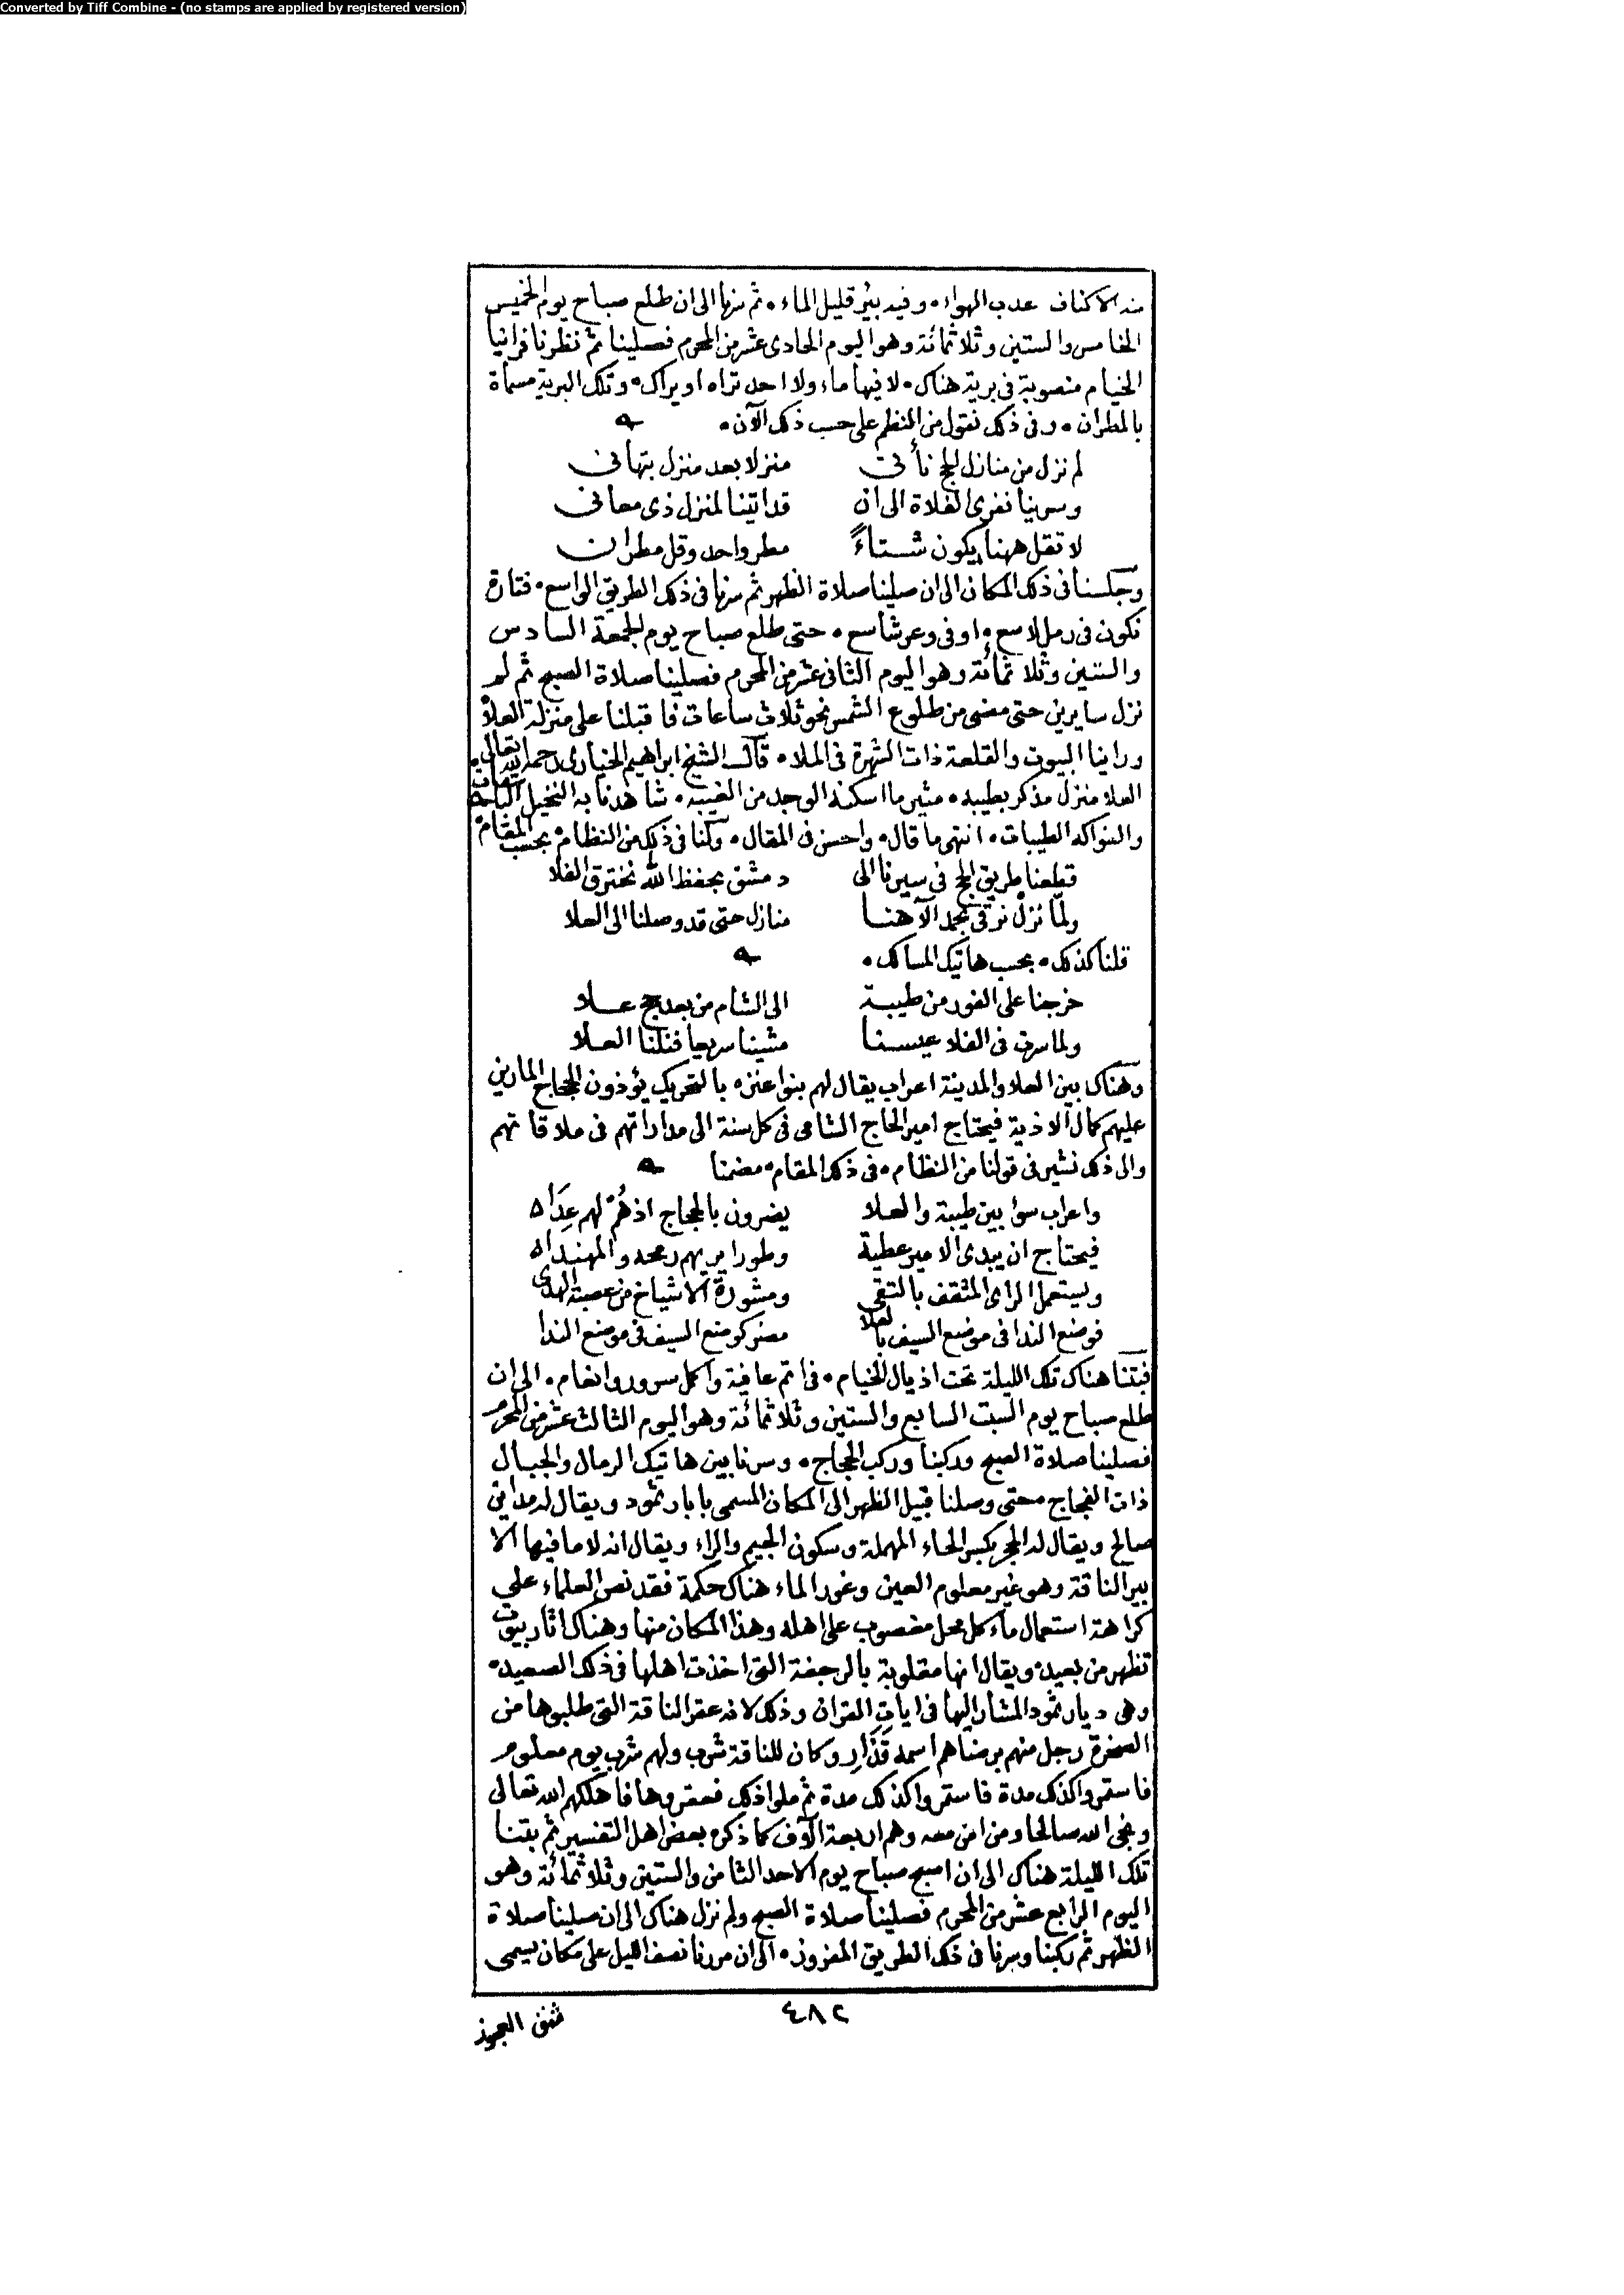 Converted by Tiff Combine - (no stamps are applied by registered version)
منه الاكناف عدب الهواء۰ وفيه بئر قليل الماء۰ ثم سرنا الى ان طلع صباح يوم الخميس
الخامس والستين وثلاثمائة وهو اليوم الحادى عشر من المحرم فصلينا ثم نظرنا فراينا
الخيام منصوبة فى برية هناك۰ لا فيها ماء ولا احد تراه او يراك۰ وتلك البرية مسماة
بالمطران۰ وفى ذلك نقول من النظم على حسب ذلك الآن۰
لم نزل من منازل الحج نأتى منزلا بعد منزل بتهانى
وسرينا نفرى الفلاة الى ان قد اتينا لمنزل ذى معانى
لا تقل ههنا يكون شتاءً مطر واحد وقل مطران
وجلسنا فى ذلك المكان الى ان صلينا صلاة الظهر ثم سرنا فى ذلك الطريق الواسع۰ فتارة
نكون فى رمل لاسع۰ او فى وعر شاسع۰ حتى طلع صباح يوم الجمعة السادس
والستين وثلاثمائة وهو اليوم الثانى عشر من المحرم فصلينا صلاة الصبح ثم لم
نزل سايرين حتى مضى من طلوع الشمس نحو ثلاث ساعات فاقبلنا على منزلة العلا
وراينا البيوت والقلعة ذات الشهرة فى الملا۰ قال الشيخ ابراهيم الخيارى رحمه الله تعالى
العلا منزل مذكر بطيبه۰ مثير ما اسكنه الوجد من الغيبه۰ شاهدنا به النخيل الباسقات
والفواكه الطيبات۰ انتهى ما قال۰ واحسن فى المقال۰ وكنا فى ذلك من النظام۰ بحسب المقام
قطعنا طريق الحج فى سيرنا الى دمشق بحفظ الله نخترق الفلا
ولمّا نزل نرقى بحمد الآهنا منازل حتى قد وصلنا الى العلا
قلنا كذلك۰ بحسب هاتيك المسالك۰
خرجنا على الفور من طيبة الى الشام من بعد حج علا
ولما سرت فى الفلا عيسنا مشينا سريعا فنلنا العلا
وهناك بين العلا والمدينة اعراب يقال لهم بنوا عنزه بالتحريك يؤذون الحجاج المارين
عليهم كمال الاذية فيحتاج امير الحاج الشامى فى كل سنة الى مداراتهم فى ملاقاتهم
والى ذلك نشير فى قولنا من النظام۰ فى ذلك المقام۰ مضمنا
واعراب سوأ بين طيبة والعلا يضرون بالحجاج اذ هُمْ لهم عِدَا
فيحتاج ان يبدى الامير عطية وطورا يريهم رمحه والمهندا
ويستعمل الراى المثقف بالتقى ومشورة الاشياخ من عصبة الهدى
فوضع الندا فى موضع السيف بالعلا مضر كوضع السيف فى موضع الندا
فبتنا هناك تلك الليلة تحت اذيال الخيام۰ فى اتم عافية واكمل سرور وانعام۰ الى ان
طلع صباح يوم السبت السابع والستين وثلاثمائة وهو اليوم الثالث عشر من المحرم
فصلينا صلاة الصبح وركبنا وركب الحجاج۰ وسرنا بين هاتيك الرمال والجبال
ذات الفجاج۰ حتى وصلنا قبيل الظهر الى المكان المسمى بابار ثمود ويقال له مداين
صالح ويقال له الحجر بكسر الحاء المهملة وسكون الجيم والراء ويقال انه لا ما فيها الا
بير الناقة وهو غير معلوم العين وغور الماء هناك حكمة فقد نص العلماء على
كراهة استعمال ماء كل محل مغصوب على اهله وهذا المكان منها وهناك اثار بيوت
تظهر من بعيد۰ ويقال انها مقلوبة بالرجفة التى اخذت اهلها فى ذلك الصعيد۰
وهى ديار ثمود المشار اليها فى ايات القران وذلك لانه عقر الناقة التى طلبوها من
الصخرة رجل منهم برضاهم اسمه قُدَار وكان للناقة شرب ولهم شرب يوم معلوم
فاستمروا كذلك مدة فاستمروا كذلك مدة ثم ملوا ذلك فعقروها فاهلكهم الله تعالى
ونجى الله صالحا ومن امن معه وهم اربعة آلاف كما ذكره بعض اهل التفسير ثم بتنا
تلك الليلة هناك الى ان اصبح صباح يوم الاحد الثامن والستين وثلاثمائة وهو
اليوم الرابع عشر من المحرم فصلينا صلاة الصبح ولم نزل هناك الى ان صلينا صلاة
الظهر ثم ركبنا وسرنا فى ذلك الطريق المفروز۰ الى ان مررنا نصف الليل على مكان يسمى
٤٨٢
شق العجوز